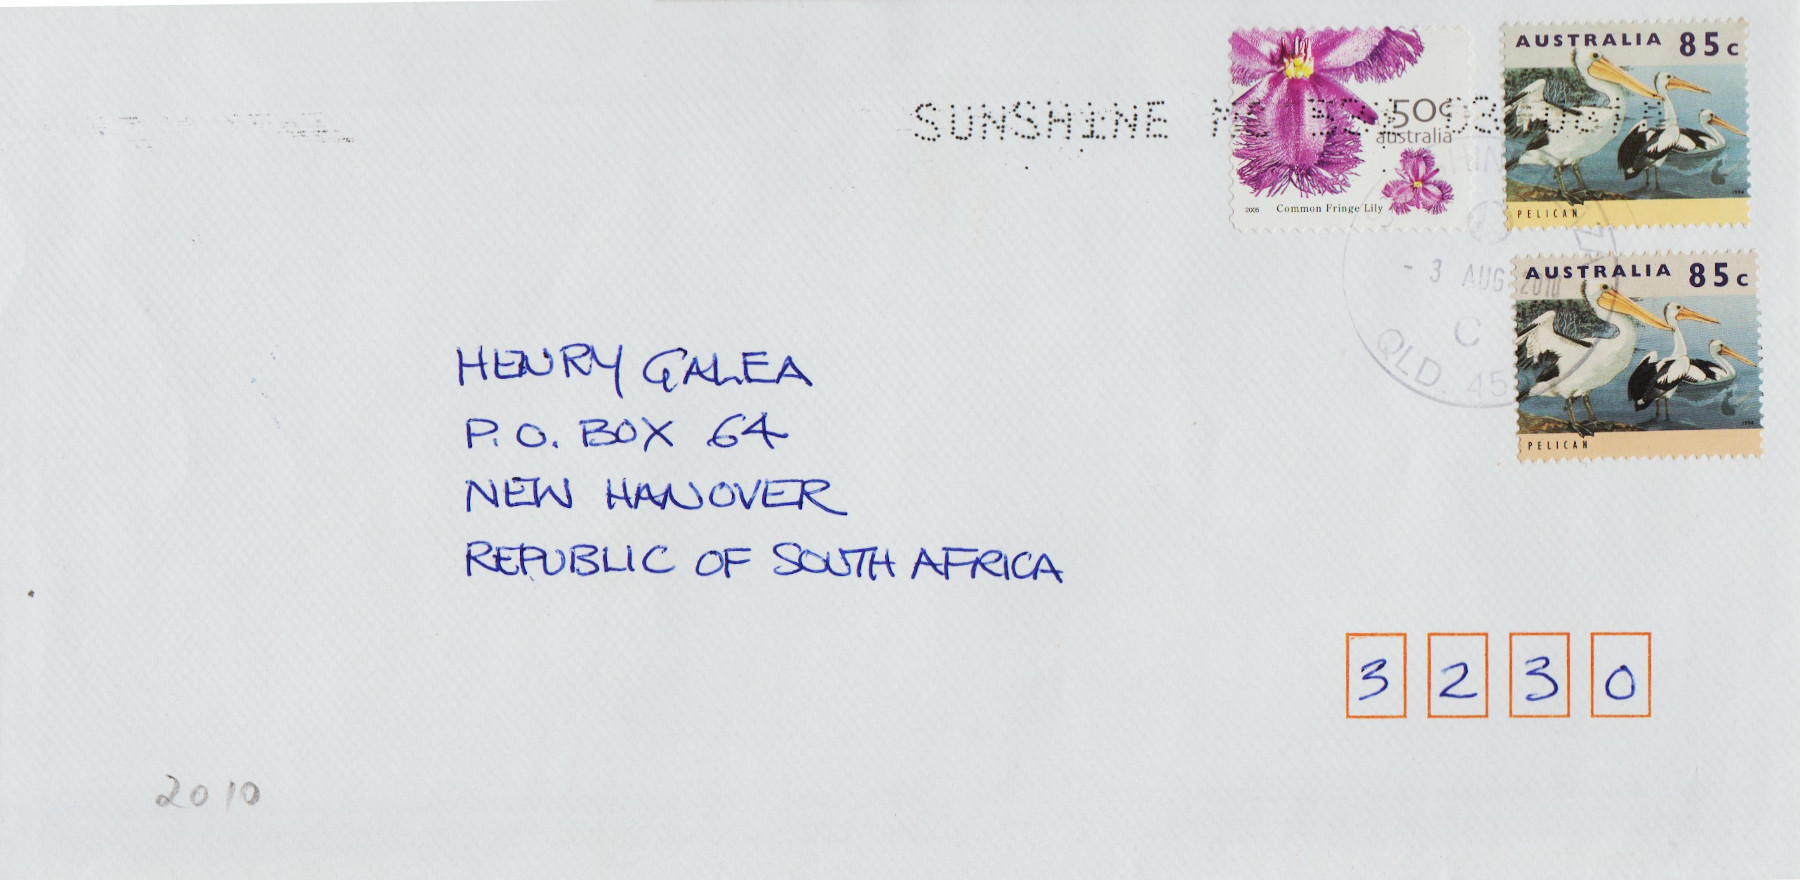 AUSTRALIA 85c
PELICAN
1994
50c
australia
2005 Common Fringe Lily
SUNSHINE
- 3 AUG 2010
C
QLD. 45
AUSTRALIA 85c
PELICAN
1994
HENRY GALEA
P.O. BOX 64
NEW HANOVER
REPUBLIC OF SOUTH AFRICA
3 2 3 0
2010